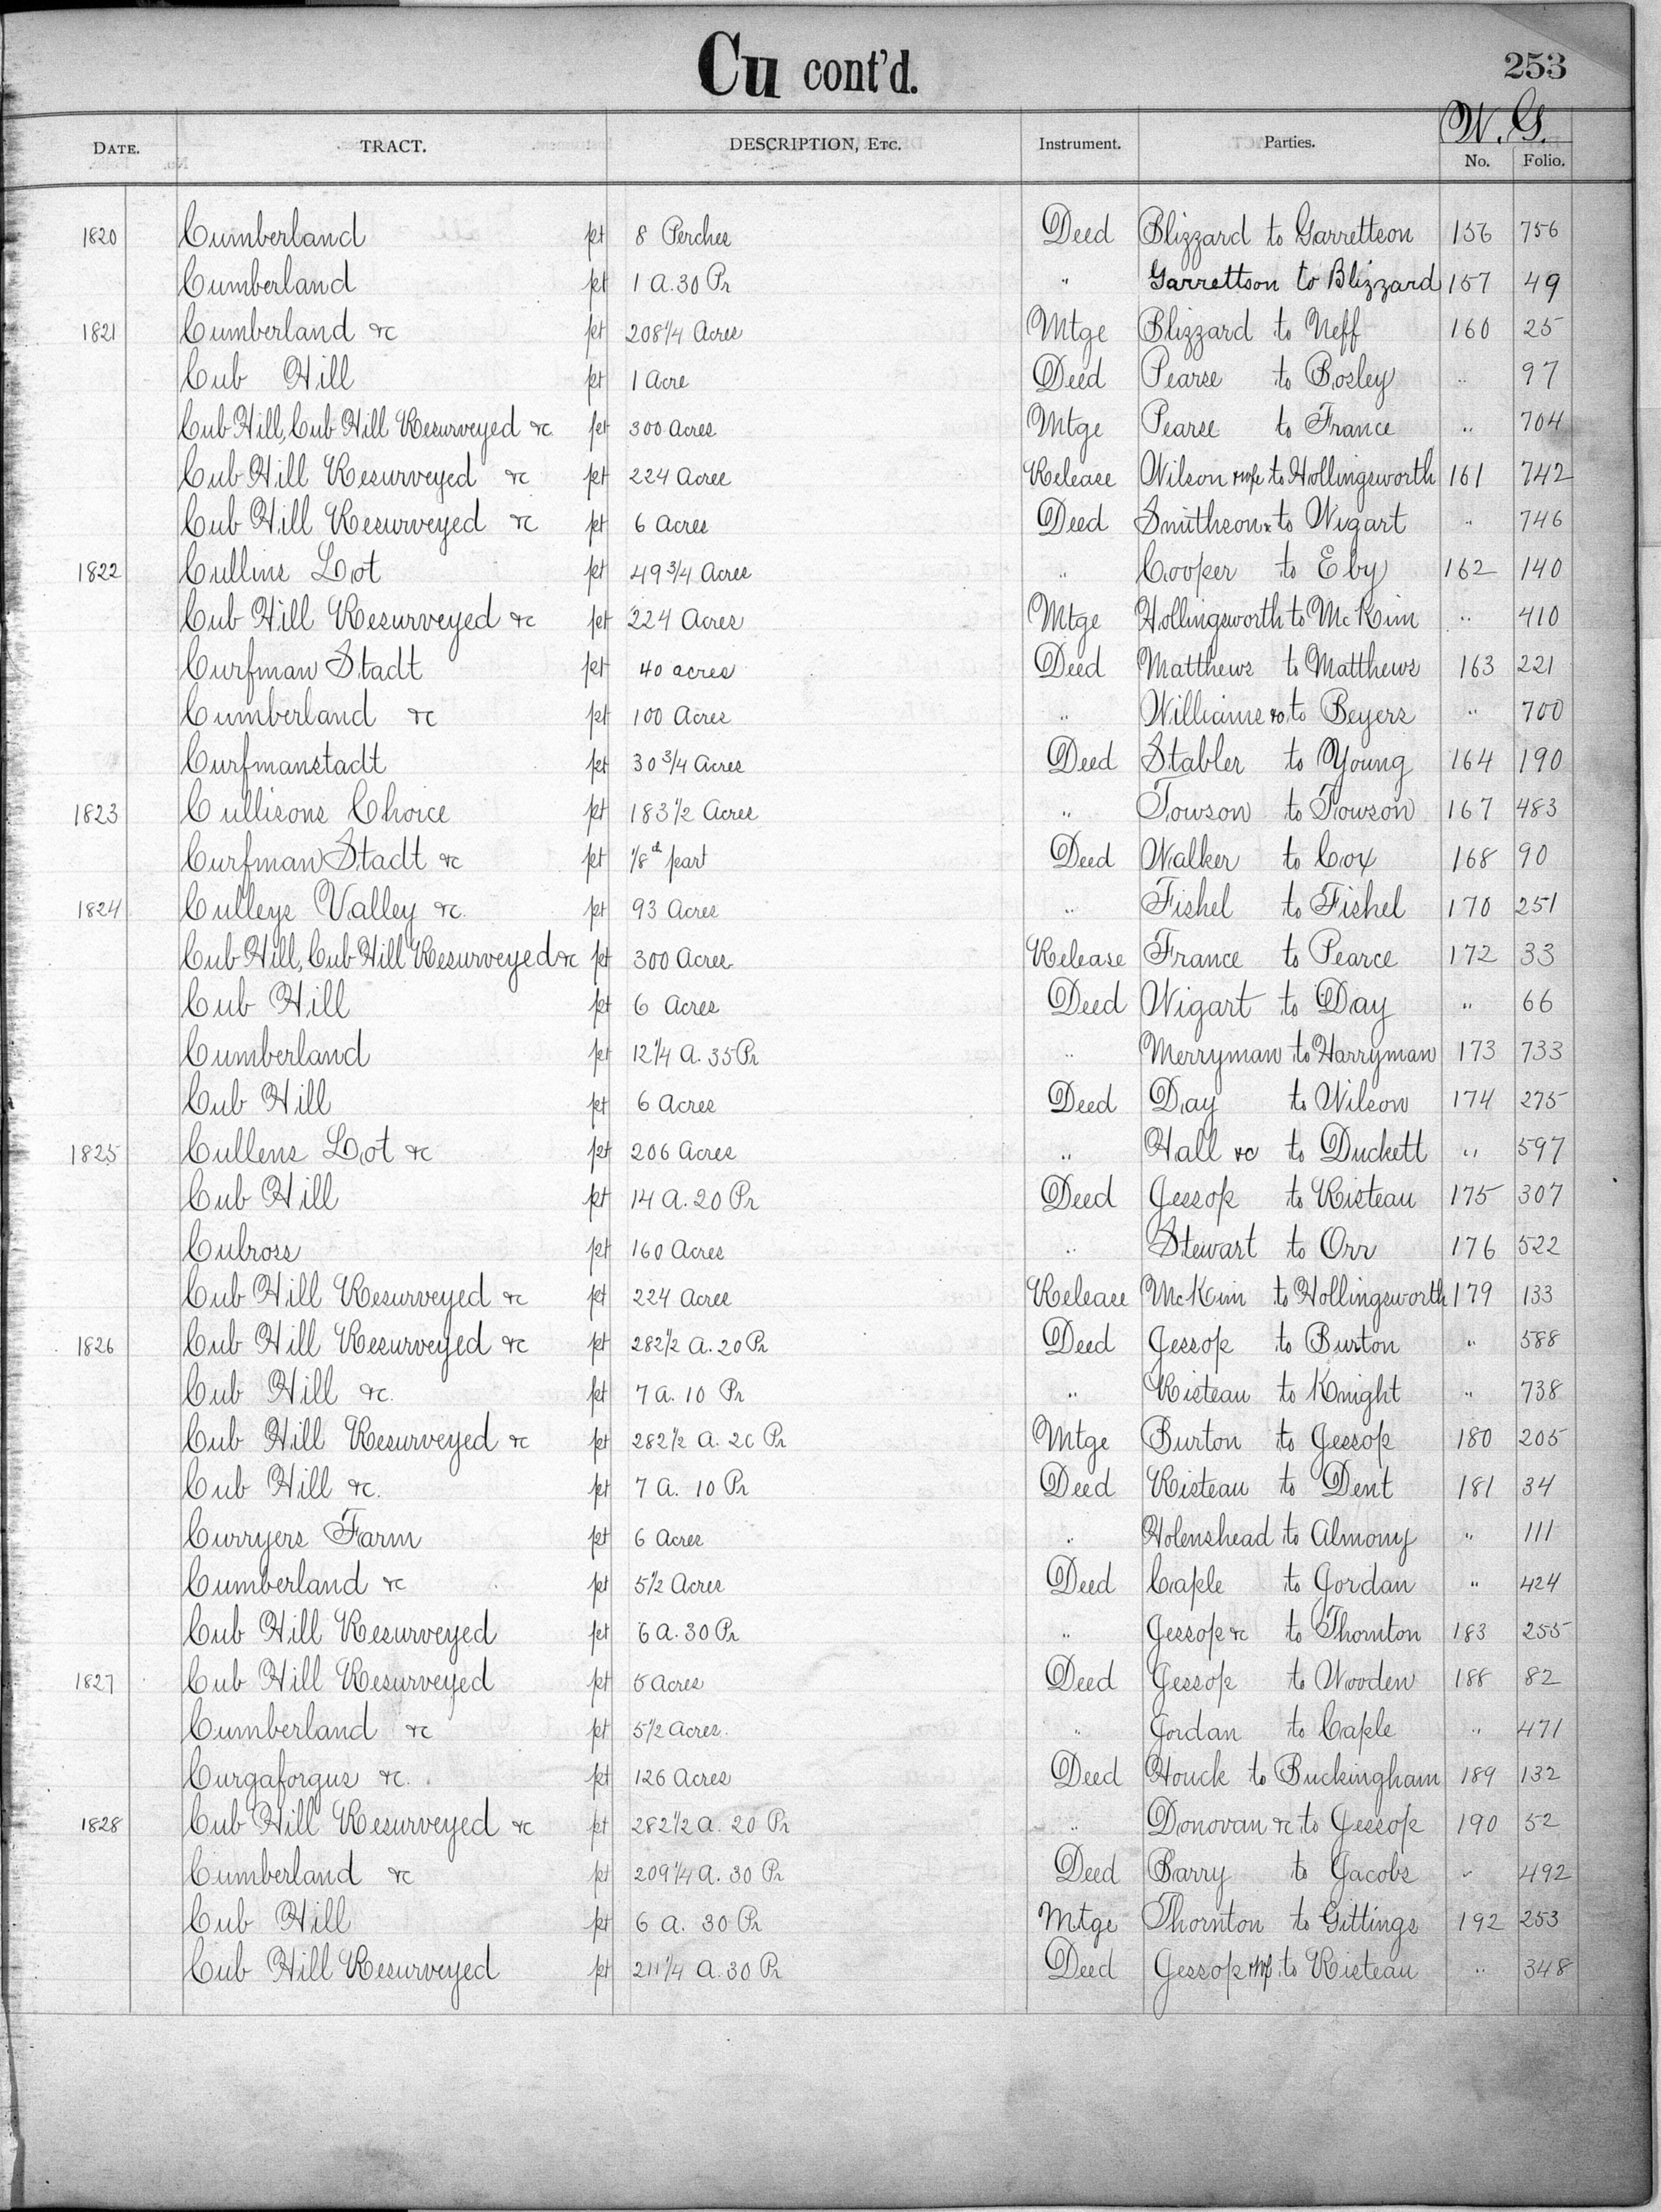 Cu cont'd.
253
W. G.
DATE. TRACT. DESCRIPTION, ETC. Instrument. Parties. No. Folio.
1820 Cumberland pt 8 Perches Deed Blizzard to Garrettson 156 756
Cumberland pt 1 A. 30 Pr " Garrettson to Blizzard 157 49
1821 Cumberland &c pt 208 1/4 Acres Mtge Blizzard to Neff 160 25
Cub Hill pt 1 Acre Deed Pearse to Bosley " 97
Cub Hill, Cub Hill Resurveyed &c pt 300 Acres Mtge Pearse to France " 704
Cub Hill Resurveyed &c pt 224 Acres Release Wilson & wife to Hollingsworth 161 742
Cub Hill Resurveyed &c pt 6 Acres Deed Smithson to Wigart " 746
1822 Cullins Lot pt 49 3/4 Acres " Cooper to Eby 162 140
Cub Hill Resurveyed &c pt 224 Acres Mtge Hollingsworth to McKim " 410
Curfman Stadt pt 40 acres Deed Matthews to Matthews 163 221
Cumberland &c pt 100 Acres " Williams &c to Beyers " 700
Curfmanstadt pt 30 3/4 Acres Deed Stabler to Young 164 190
1823 Cullisons Choice pt 183 1/2 Acres " Towson to Towson 167 483
Curfman Stadt &c pt 1/8th part Deed Walker to Cox 168 90
1824 Culleys Valley &c. pt 93 Acres " Fishel to Fishel 170 251
Cub Hill, Cub Hill Resurveyed &c pt 300 Acres Release France to Pearce 172 33
Cub Hill pt 6 Acres Deed Wigart to Day " 66
Cumberland pt 12 1/4 A. 35 Pr " Merryman to Harryman 173 733
Cub Hill pt 6 Acres Deed Day to Wilson 174 275
1825 Cullens Lot &c pt 206 Acres " Hall &c to Duckett " 597
Cub Hill pt 14 A. 20 Pr Deed Jessop to Risteau 175 307
Culross pt 160 Acres " Stewart to Orr 176 522
Cub Hill Resurveyed &c pt 224 Acres Release McKim to Hollingsworth 179 133
1826 Cub Hill Resurveyed &c pt 282 1/2 A. 20 Pr Deed Jessop to Burton " 588
Cub Hill &c. pt 7 A. 10 Pr " Risteau to Knight " 738
Cub Hill Resurveyed &c pt 282 1/2 A. 20 Pr Mtge Burton to Jessop 180 205
Cub Hill &c. pt 7 A. 10 Pr Deed Risteau to Dent 181 34
Curryers Farm pt 6 Acres " Holenshead to Almony " 111
Cumberland &c pt 5 1/2 Acres Deed Caple to Jordan " 424
Cub Hill Resurveyed pt 6 A. 30 Pr " Jessop &c to Thornton 183 255
1827 Cub Hill Resurveyed pt 5 Acres Deed Jessop to Wooden 188 82
Cumberland &c pt 5 1/2 Acres. " Jordan to Caple " 471
Curgaforgus &c. pt 126 Acres Deed Houck to Buckingham 189 132
1828 Cub Hill Resurveyed &c pt 282 1/2 A. 20 Pr " Donovan &c to Jessop 190 52
Cumberland &c pt 209 1/4 A. 30 Pr Deed Barry to Jacobs " 492
Cub Hill pt 6 A. 30 Pr Mtge Thornton to Gittings 192 253
Cub Hill Resurveyed pt 211 1/4 A. 30 Pr Deed Jessop & Wf. to Risteau " 348